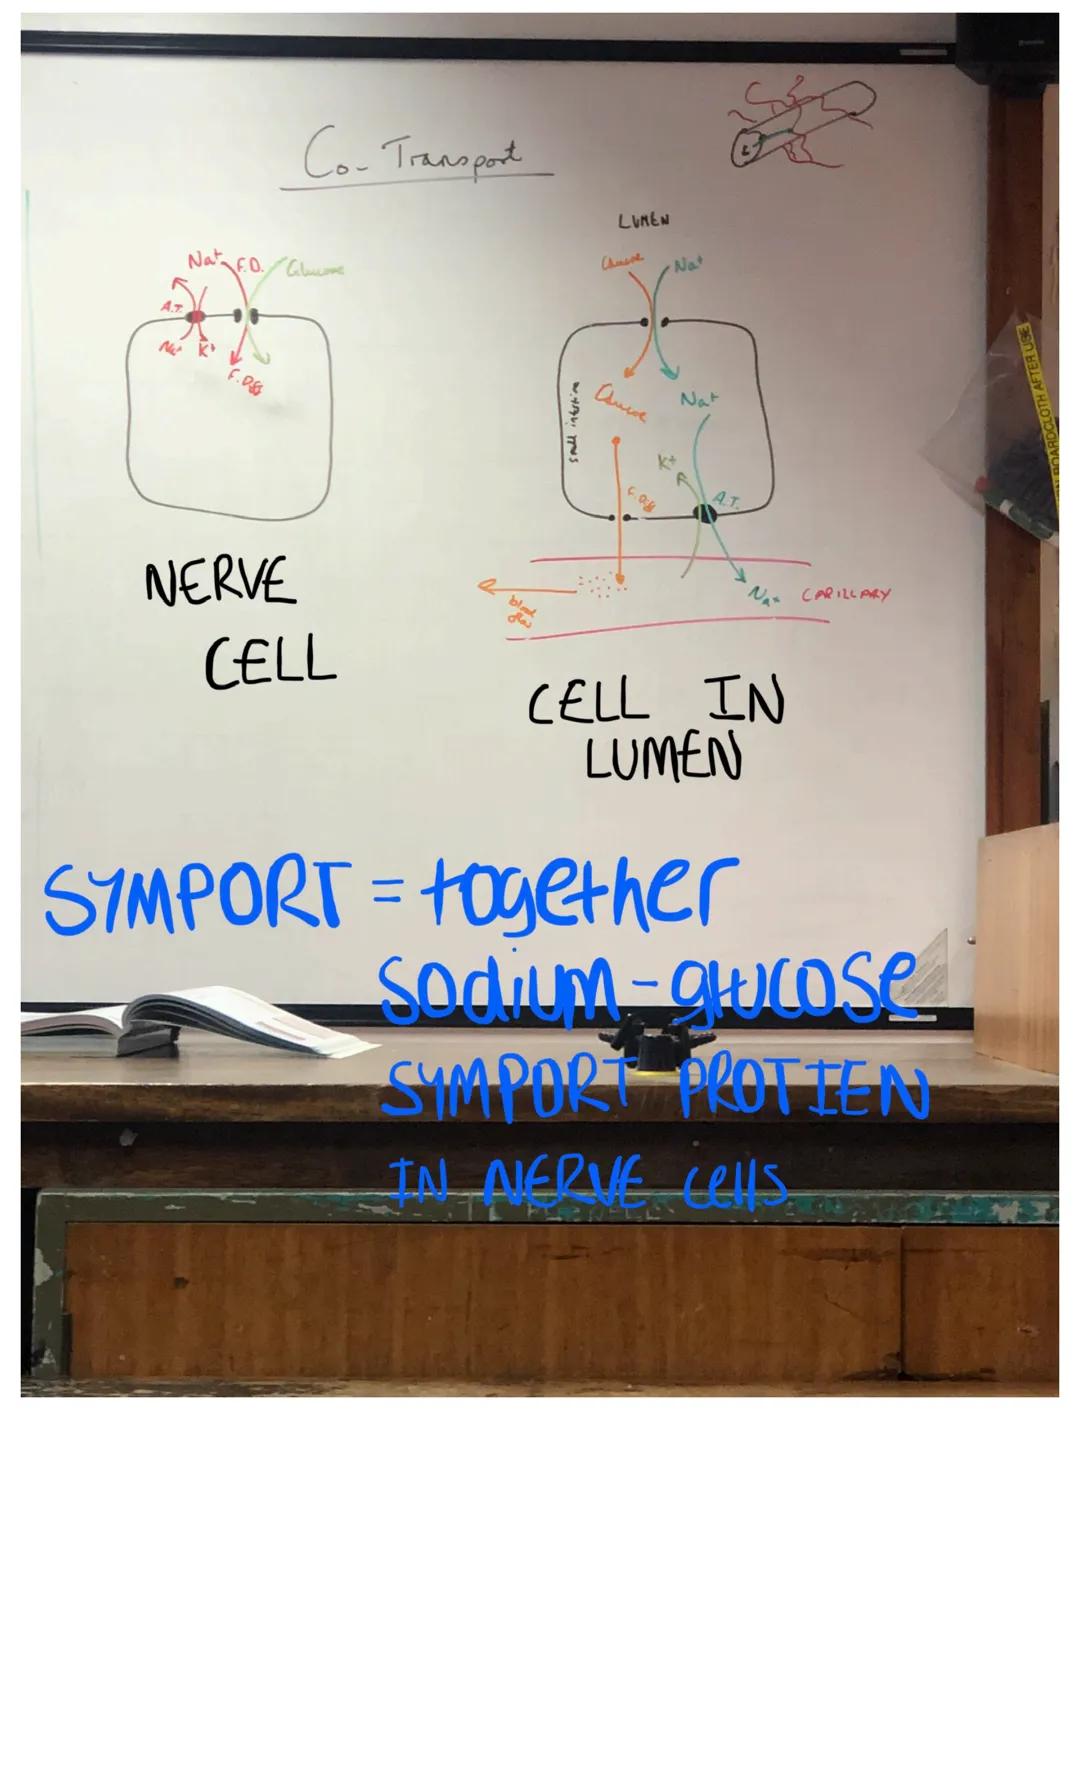 Co-Transport
LUMEN
Na+ F.D. Glucose
A.T.
Na+ K+
F. Diff
Glucose Na+
Glucose Na+
small intestine
K+
F. Diff
A.T.
blood flow
Na+ CAPILLARY
NERVE
CELL
CELL IN
LUMEN
SYMPORT = together
sodium-glucose
SYMPORT PROTIEN
IN NERVE cells
BOARDCLOTH AFTER USE